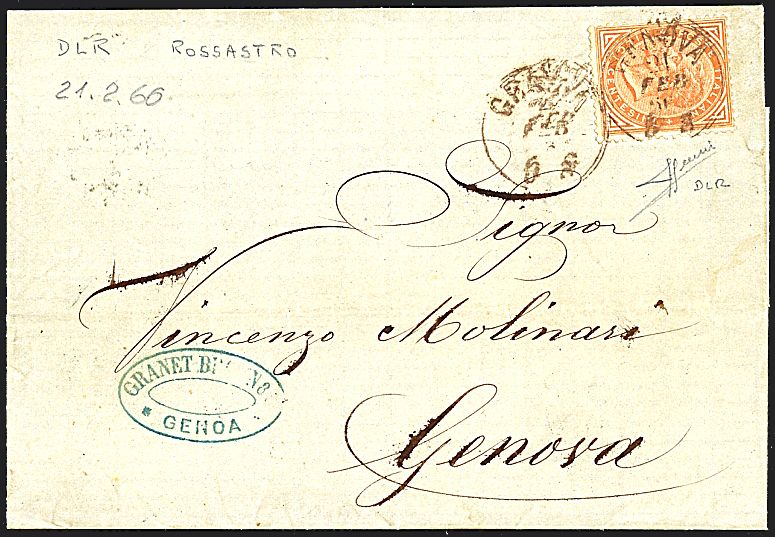 DLR ROSSASTRO
21.2.66
GENOVA
FEB
GENOVA
21
FEB
DLR
Signor
Vincenzo Molinari
Genova
GRANET
GENOA